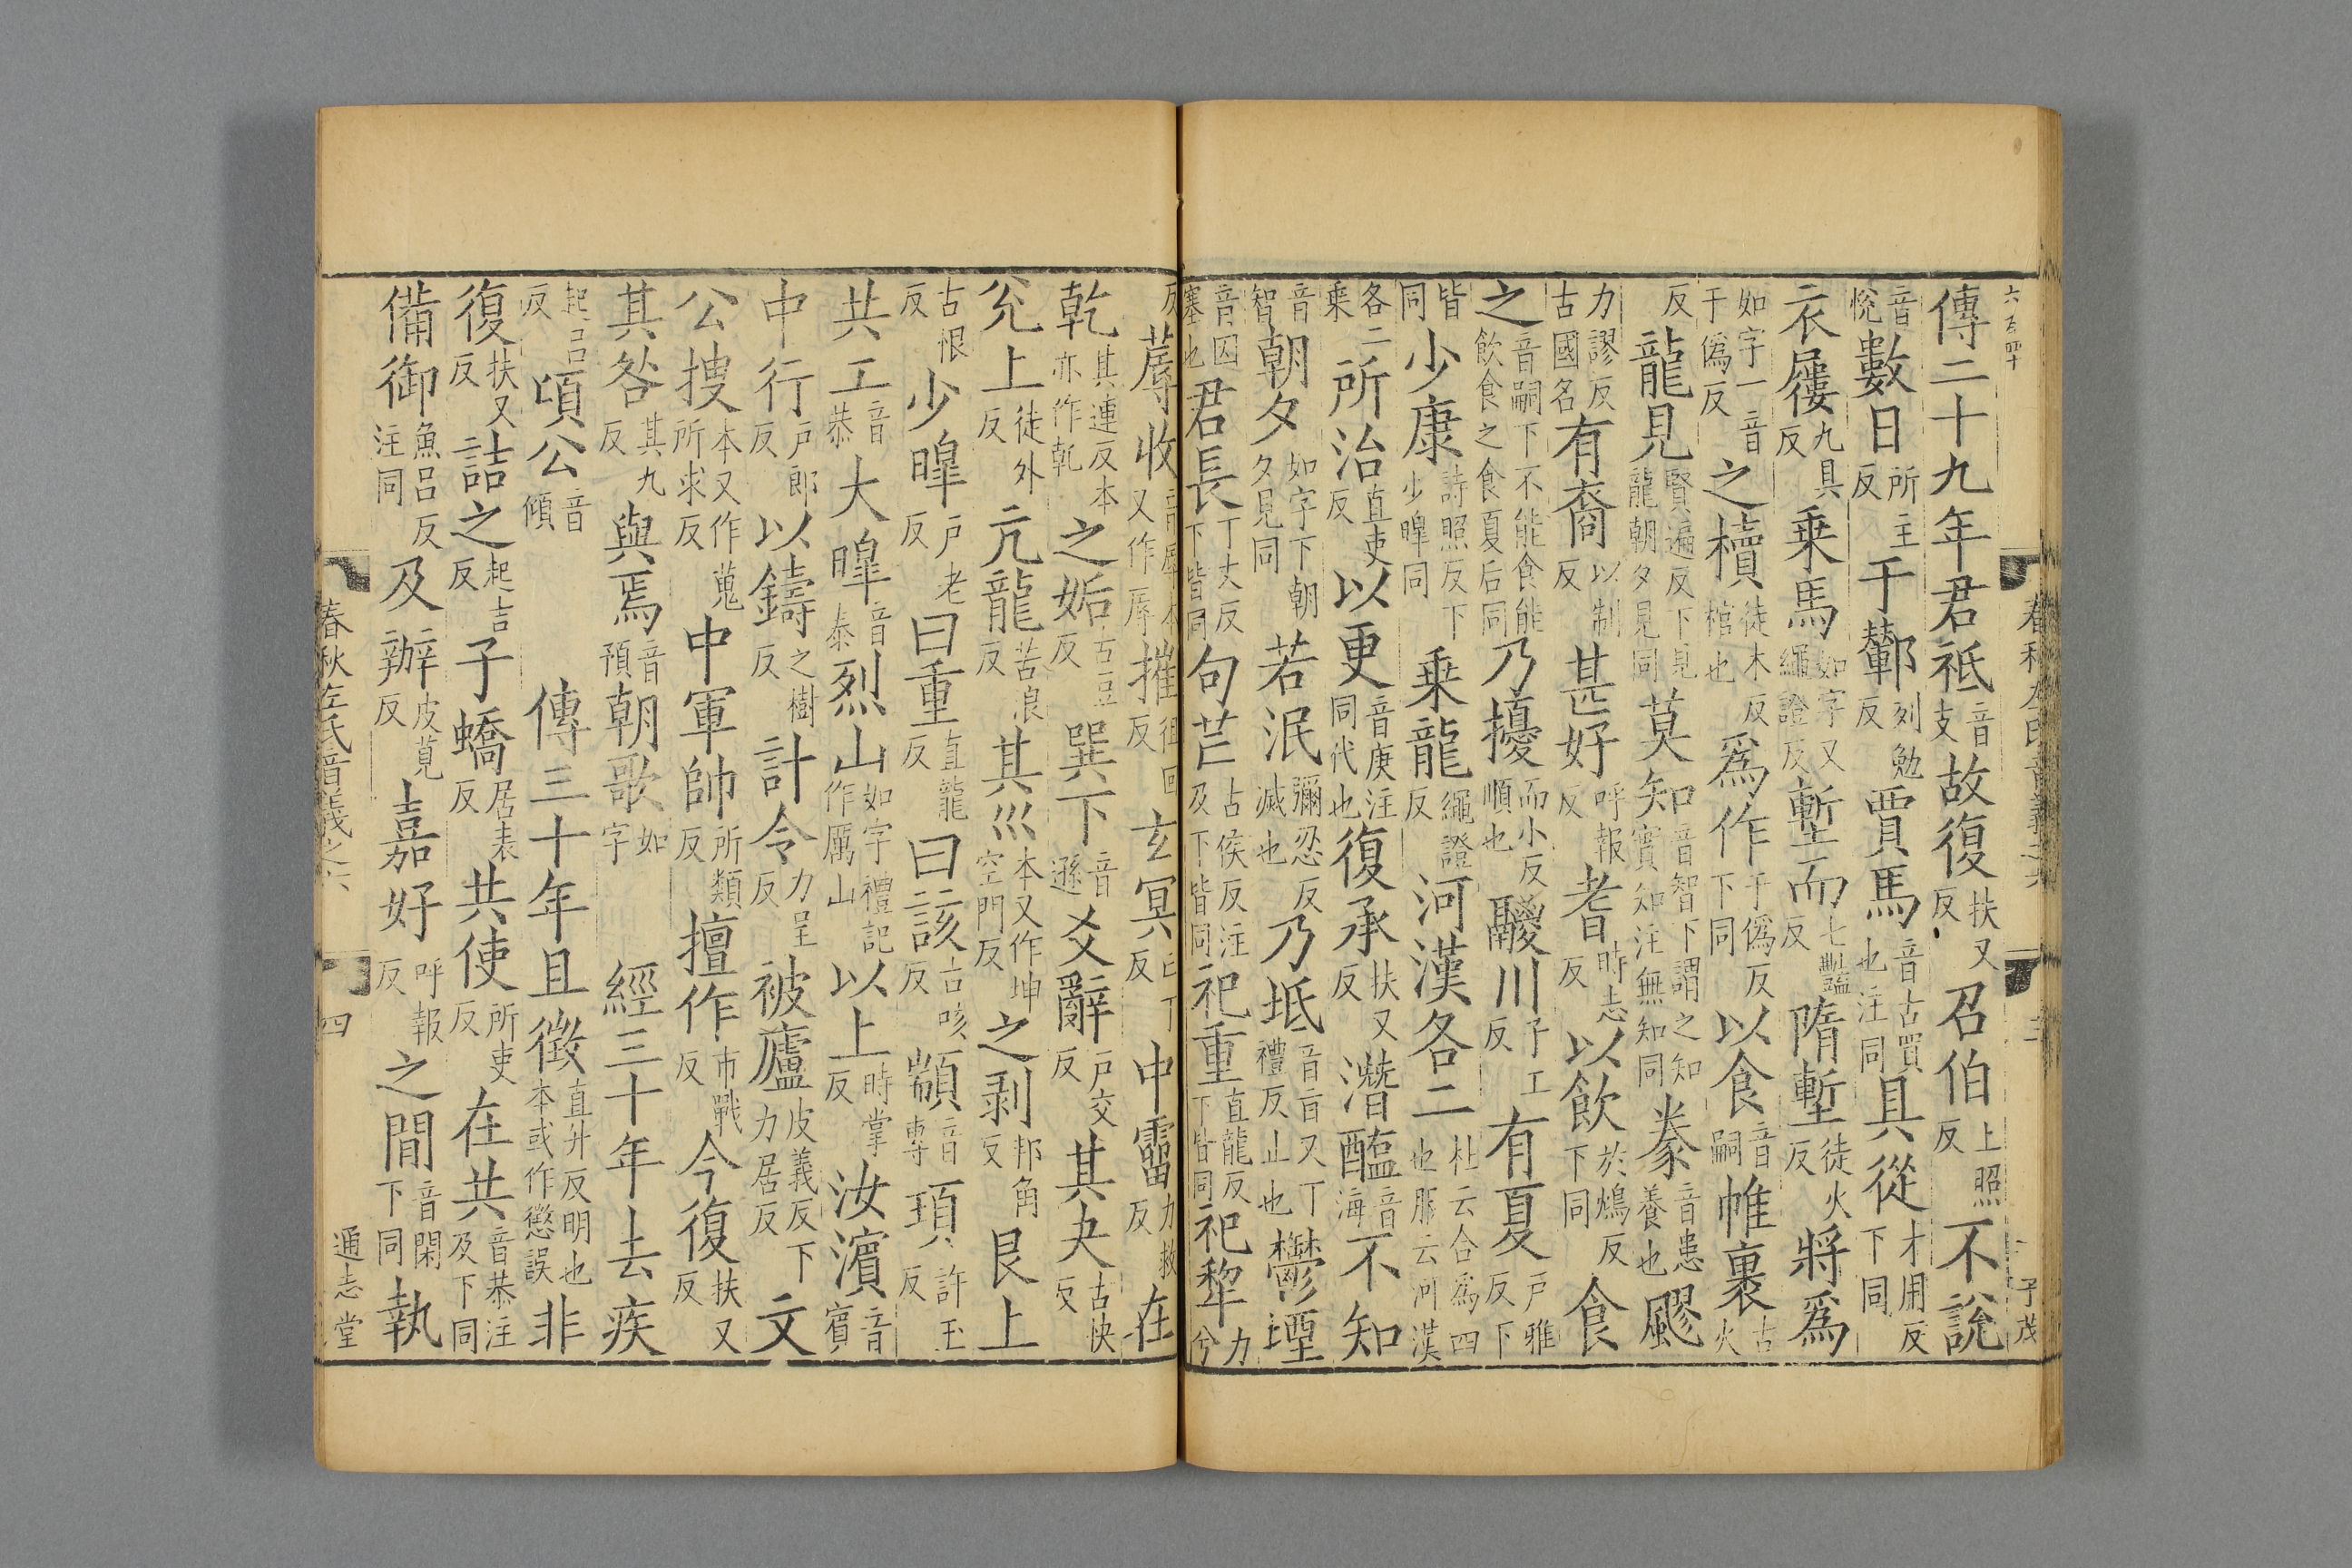 傳二十九年君祗音支故復扶又反召伯上照反不說
音悅數日所主反干鄻列勉反賈馬音古買也注同具從才用反下同
衣屨九具反乘馬如字又繩證反塹而七豔反隋塹徒火反將爲
如字一音于僞反之櫝徒木反棺也爲作于僞反下同以食音嗣帷裹古火
反龍見賢遍反下見龍朝夕見同莫知音智下謂之知實知注無知同豢音患養也飂
力謬反古國名有裔以制反甚好呼報反耆時志反以飲於鴆反下同食
之音嗣下不能食能飲食之食夏后同乃擾而小反順也鬷川子工反有夏戶雅反下
皆同少康詩照反下少皡同乘龍繩證反河漢各二杜云合爲四也服云河漢
各二乘所治直吏反以更音庚注同代也復承扶又反潛醢音海不知
音智朝夕如字下朝夕見同若泯彌忍反滅也乃坻音旨又丁禮反止也鬱堙
音因塞也君長丁丈反下皆同句芒古侯反注及下皆同祀重直龍反下皆同祀犂力兮
反蓐收音辱本又作辱摧徂回反玄冥亡丁反中霤力救反在
乾其連反本亦作乾之姤古豆反巽下音遜爻辭戶交反其夬古快反
兊上徒外反亢龍苦浪反其巛本又作坤空門反之剥邦角反艮上
古恨反少皡戶老反曰重直龍反曰該古咳反顓音專頊許玉反
共工音恭大皡音泰烈山如字禮記作厲山以上時掌反汝濱音賓
中行戶郎反以鑄之樹反計令力呈反被廬皮義反下力居反文
公搜本又作蒐所求反中軍帥所類反擅作市戰反今復扶又反
其咎其九反與焉音預朝歌如字經三十年去疾
起呂反頃公音傾傳三十年且徵直升反明也本或作懲誤非
復扶又反詰之起吉反子蟜居表反共使所吏反在共音恭注及下同
備御魚呂反注同及辦皮莧反嘉好呼報反之間音閑下同執
六百四十
春秋左氏音義之六
三
子茂
春秋左氏音義之六
四
通志堂